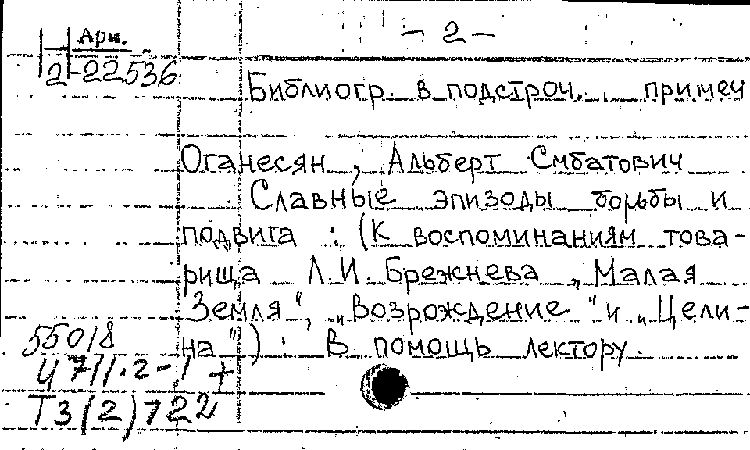 - 2 -
Арм.
2-22536
Библиогр. в подстроч. примеч
Оганесян, Альберт Смбатович
Славные эпизоды борьбы и
подвига : (К воспоминаниям това-
рища Л.И. Брежнева „Малая
Земля“, „Возрождение“ и „Цели-
на“) : В помощь лектору.
55018
Ч711.2-1 +
Т3(2)722